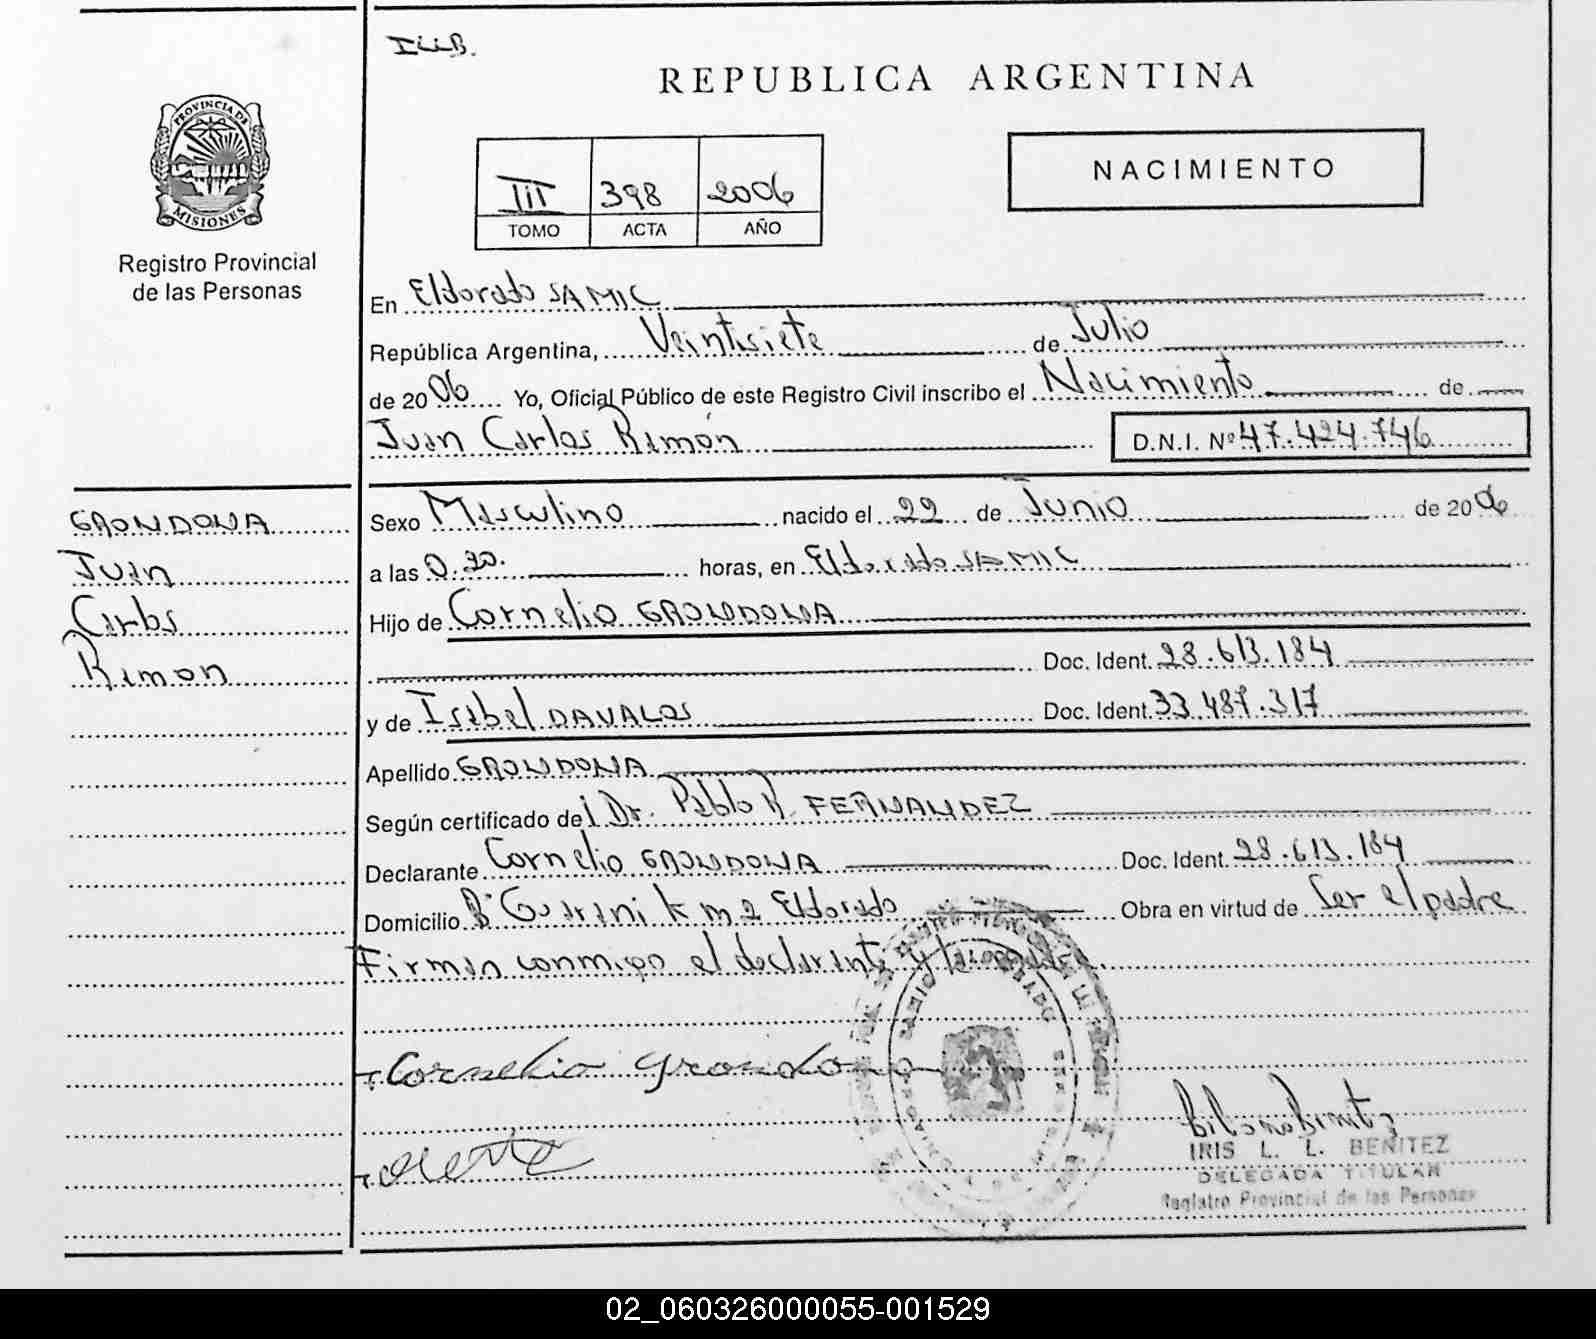 ILLB.
REPUBLICA ARGENTINA
PROVINCIA DE
MISIONES
Registro Provincial
de las Personas
III 398 2006
TOMO ACTA AÑO
NACIMIENTO
En Eldorado SAMIC
República Argentina, Veintisiete de Julio
de 2006 Yo, Oficial Público de este Registro Civil inscribo el Nacimiento de
Juan Carlos Ramón D.N.I. Nº 47.424.746
GRONDONA
Juan
Carlos
Ramon
Sexo Masculino nacido el 22 de Junio de 2006
a las 0.20. horas, en Eldorado SAMIC
Hijo de Cornelio GRONDONA
Doc. Ident. 28.613.184
y de Isabel DAVALOS Doc. Ident. 33.487.317
Apellido GRONDONA
Según certificado del Dr. Pablo R. FERNANDEZ
Declarante Cornelio GRONDONA Doc. Ident. 28.613.184
Domicilio Bº Guarani km 2 Eldorado Obra en virtud de Ser el padre
Firman conmigo el declarante y
Cornelio Grondona
IRIS L. L. BENITEZ
DELEGADA TITULAR
Registro Provincial de las Personas
02_060326000055-001529